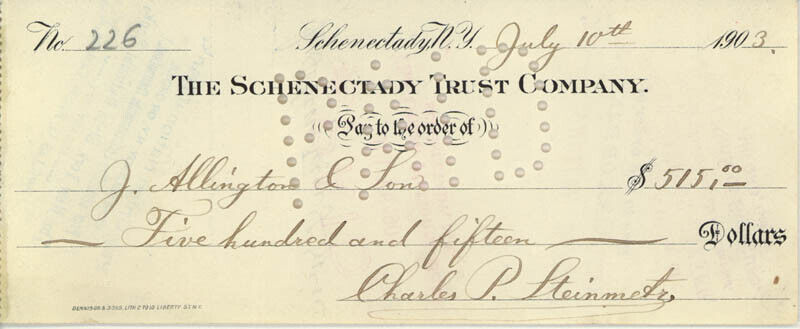 No. 226 Schenectady, N.Y. July 10th 1903.
THE SCHENECTADY TRUST COMPANY.
Pay to the order of
J. Allington & Son $515.00
Five hundred and fifteen Dollars
Charles P. Steinmetz
DENNISON & SONS, LITH